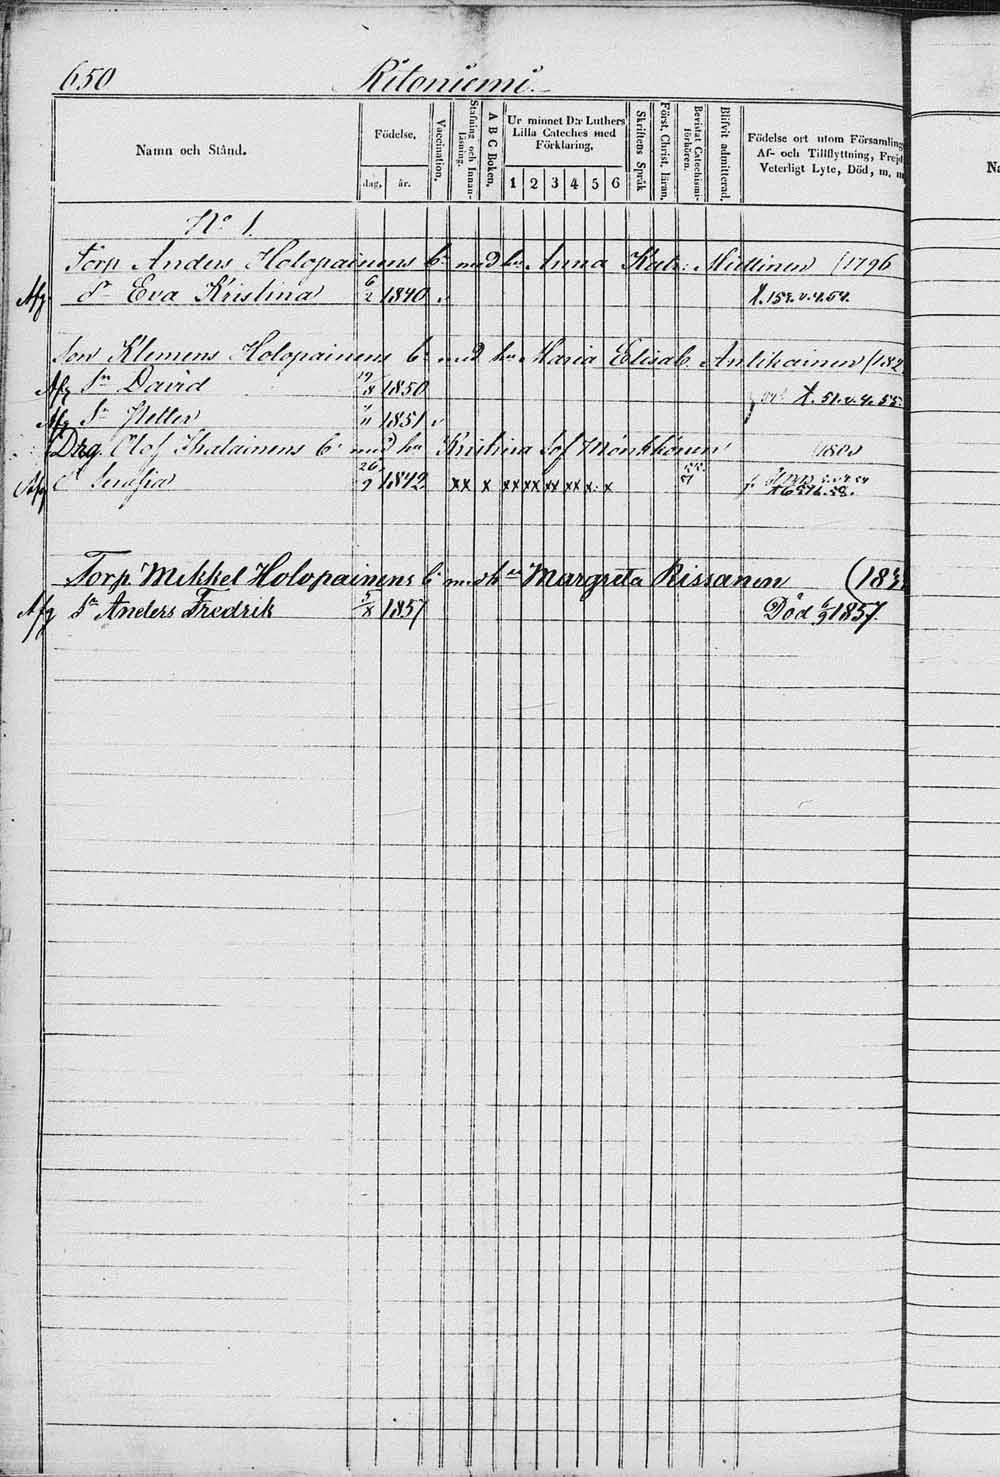 650 Ritoniemi.
Namn och Stånd.
Födelse,
dag, år.
Vaccination,
Stafning och Innanläsning.
A B C Boken,
Ur minnet D:r Luthers Lilla Cateches med Förklaring,
1 2 3 4 5 6
Skriftens Språk
Först. Christ. läran,
Bevistat Catechismiförhören.
Blifvit admitterad.
Födelse ort utom Församling
Af- och Tillflyttning, Frejd
Veterligt Lyte, Död, m. m
Na
No 1.
Torp Anders Holopainens b. med hu Anna Katr: Miettinen (1796
Afg dr Eva Kristina 6/2 1840 v X.152.v.4.54.
Son Klemens Holopainens b. med hu Maria Elisab. Antikainen (182
Afg Sn David 19/8 1850 X.51.v.4.55.
Afg Sn Petter 1851 v
Drg. Olof b. med hu Kristina Sof Mönkkönen 180
Afg d Serafia 26/9 1842 xx x xx xx xx xx x x 55 57
Torp. Mikkel Holopainens b. med hu Margreta Rissanen (18
Afg Sn Anders Fredrik 5/8 1857 Död 6/9 1857.